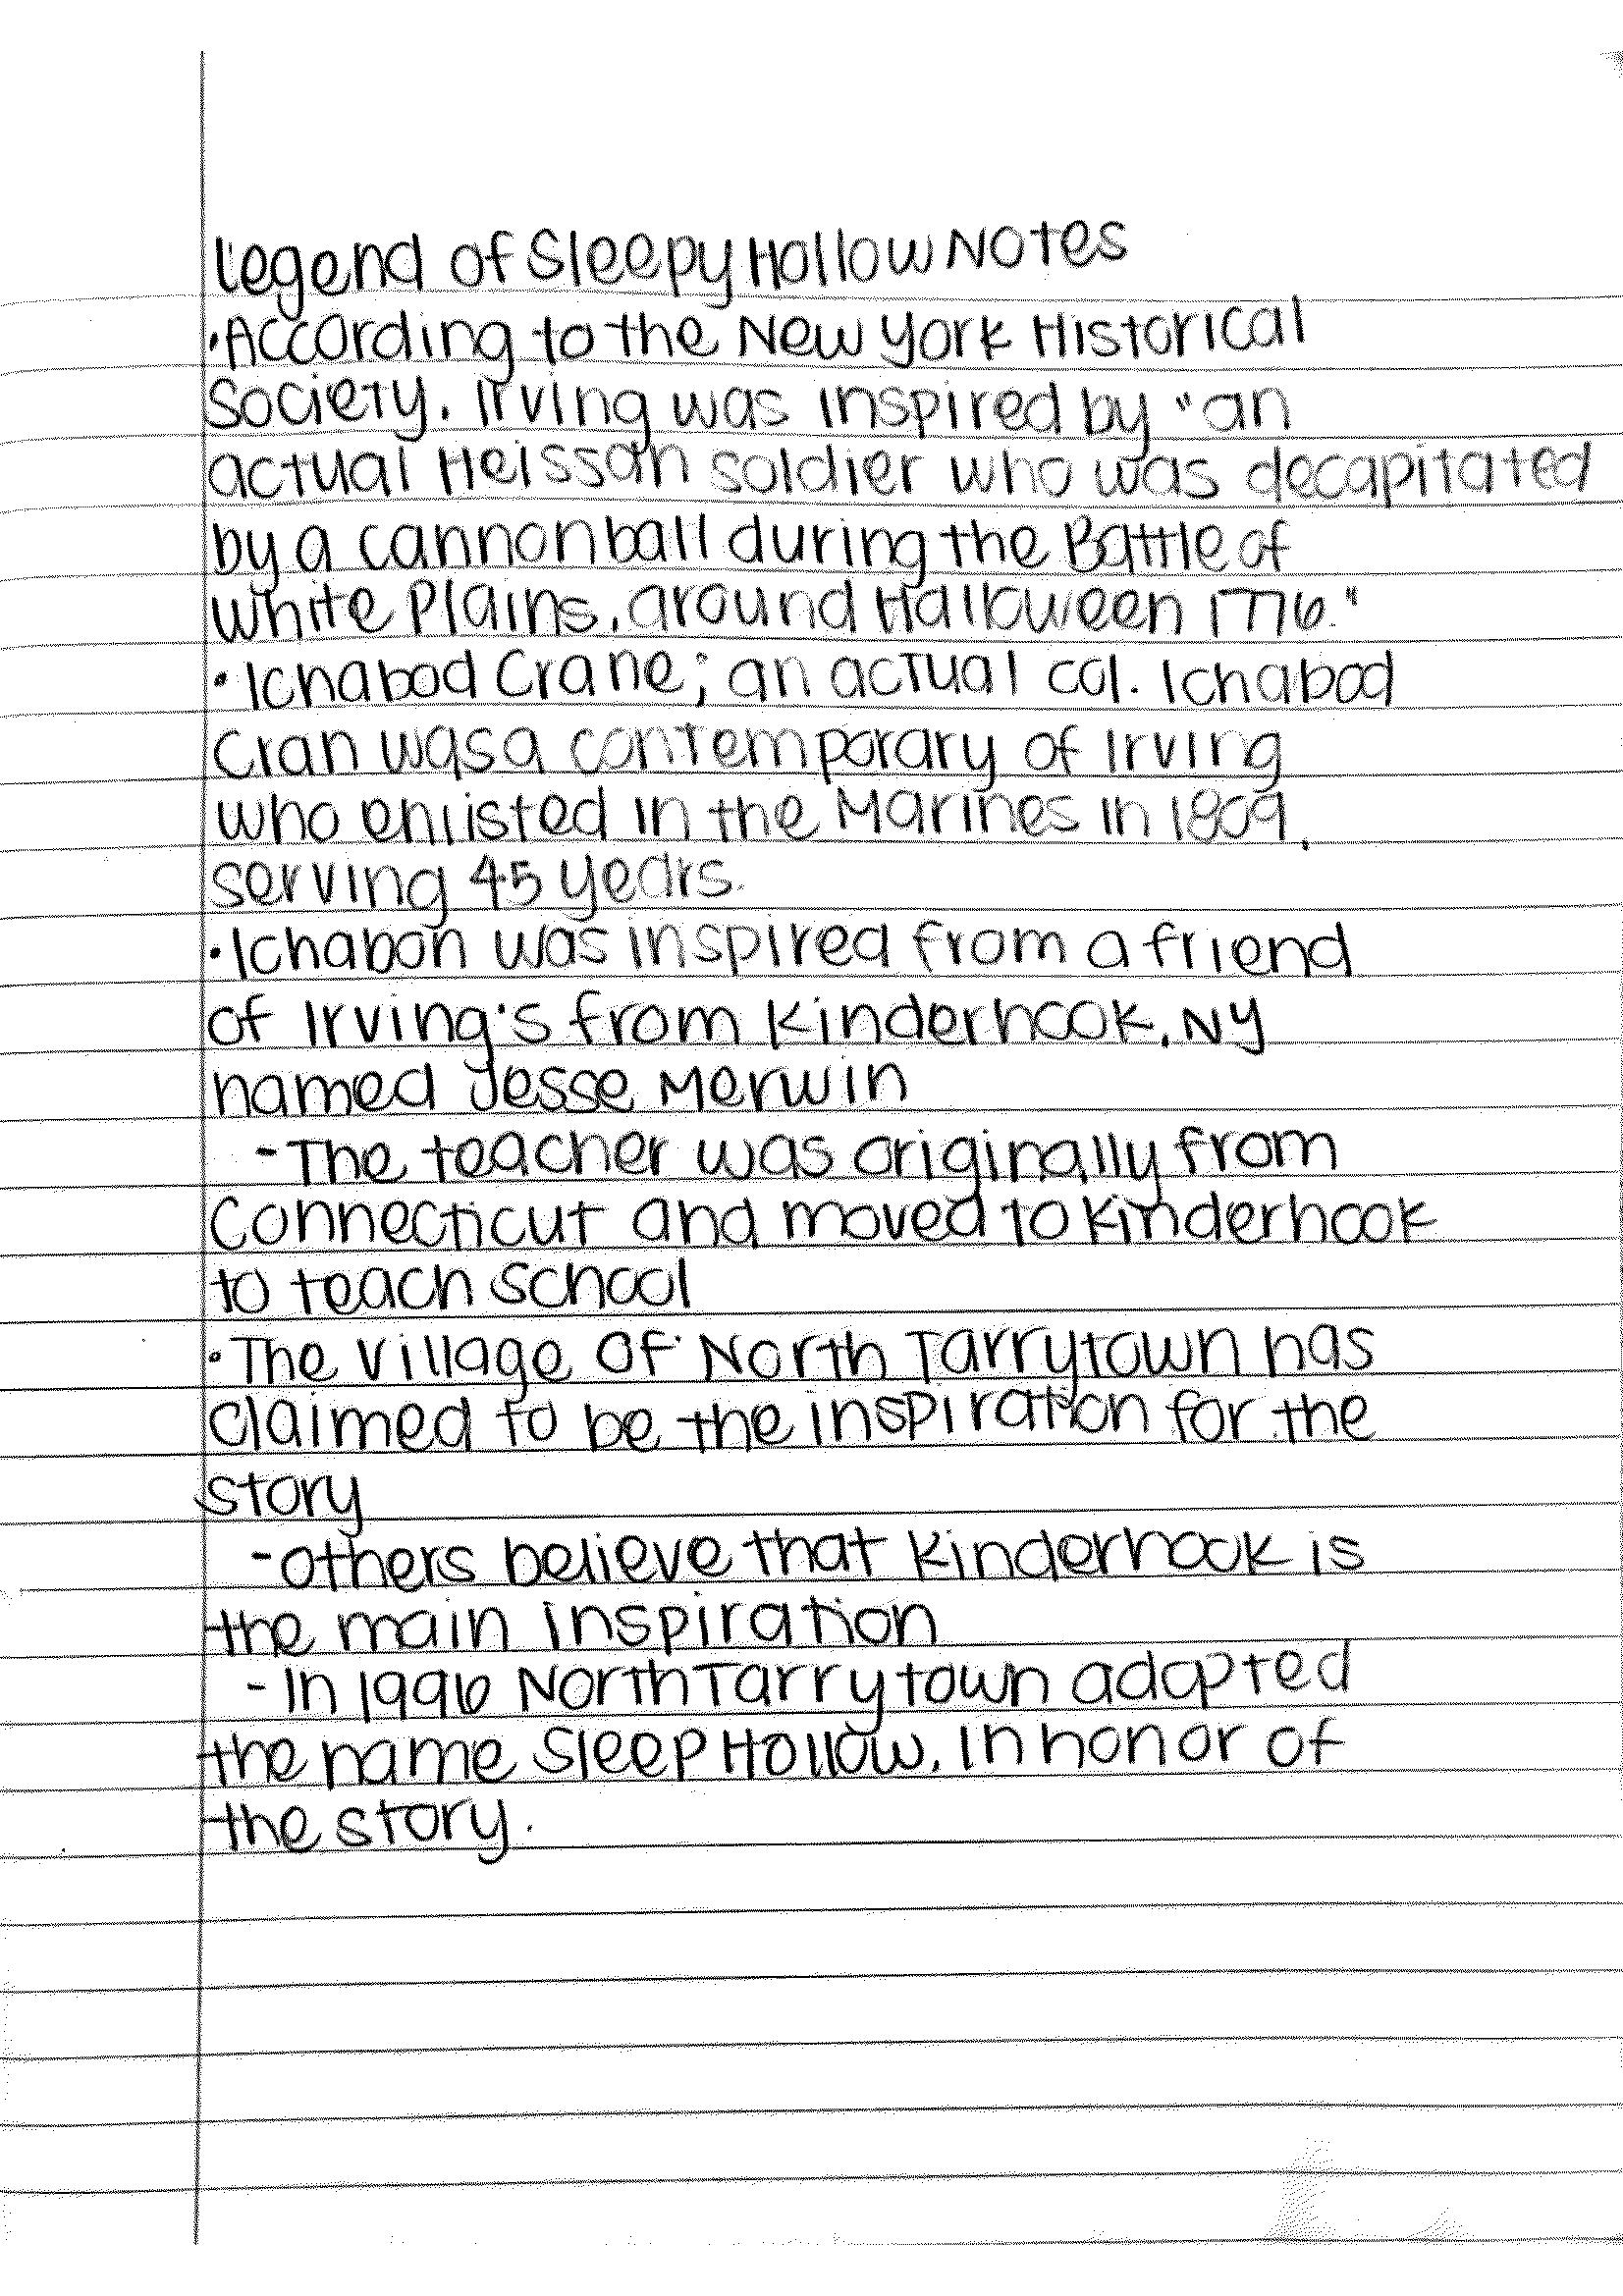 Legend of Sleepy Hollow Notes
•According to the New York Historical
Society, Irving was inspired by "an
actual Heissan soldier who was decapitated
by a cannonball during the Battle of
White Plains, around Halloween 1776."
•Ichabod Crane; an actual col. Ichabod
Cran was a contemporary of Irving
who enlisted in the Marines in 1809,
serving 45 years.
•Ichabon was inspired from a friend
of Irving's from Kinderhook, NY
named Jesse Merwin
-The teacher was originally from
Connecticut and moved to Kinderhook
to teach school
•The village of North Tarrytown has
claimed to be the inspiration for the
story
-others believe that Kinderhook is
the main inspiration
-In 1996 North Tarrytown adopted
the name Sleep Hollow, in honor of
the story.